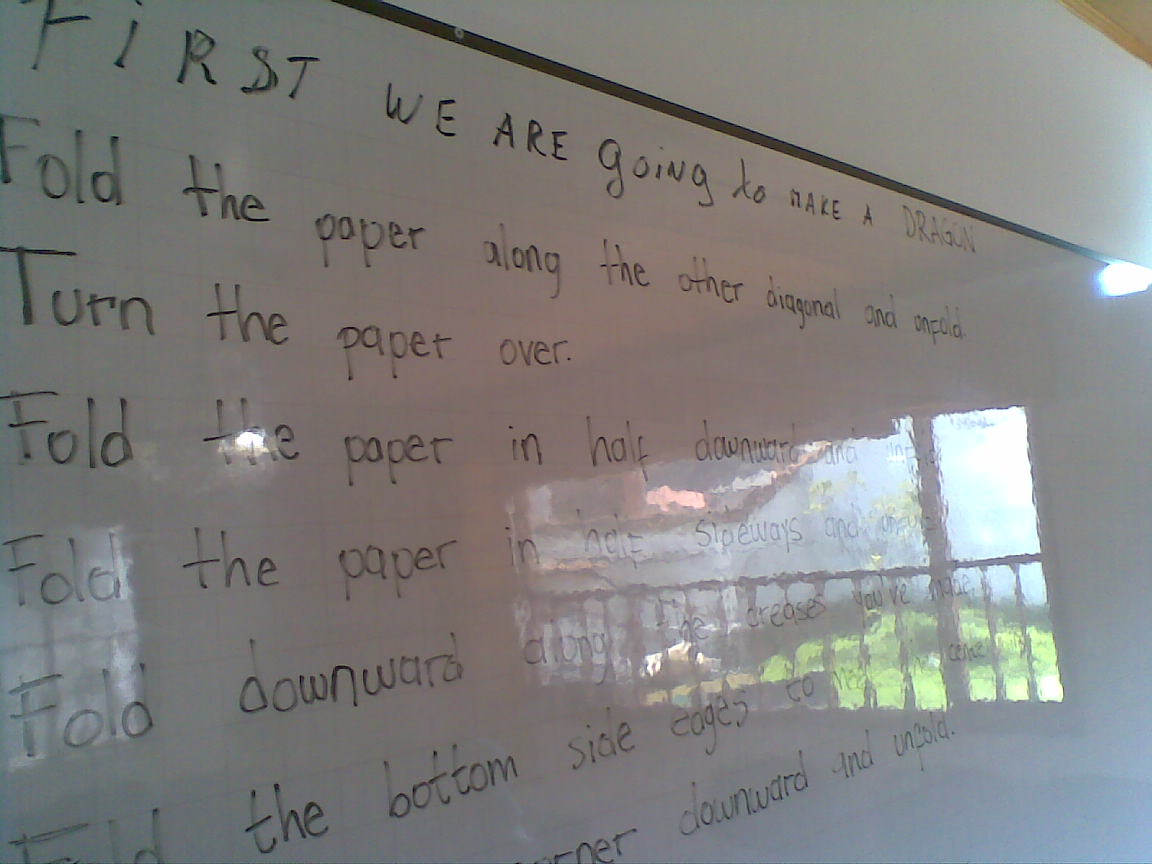 FiRST WE ARE going to MAKE A DRAGON
Fold the paper along the other diagonal and unfold.
Turn the paper over.
Fold the paper in half downward and
Fold the paper in half sideways and
Fold downward along the creases you've made,
Fold the bottom side edges to
corner downward and unfold.